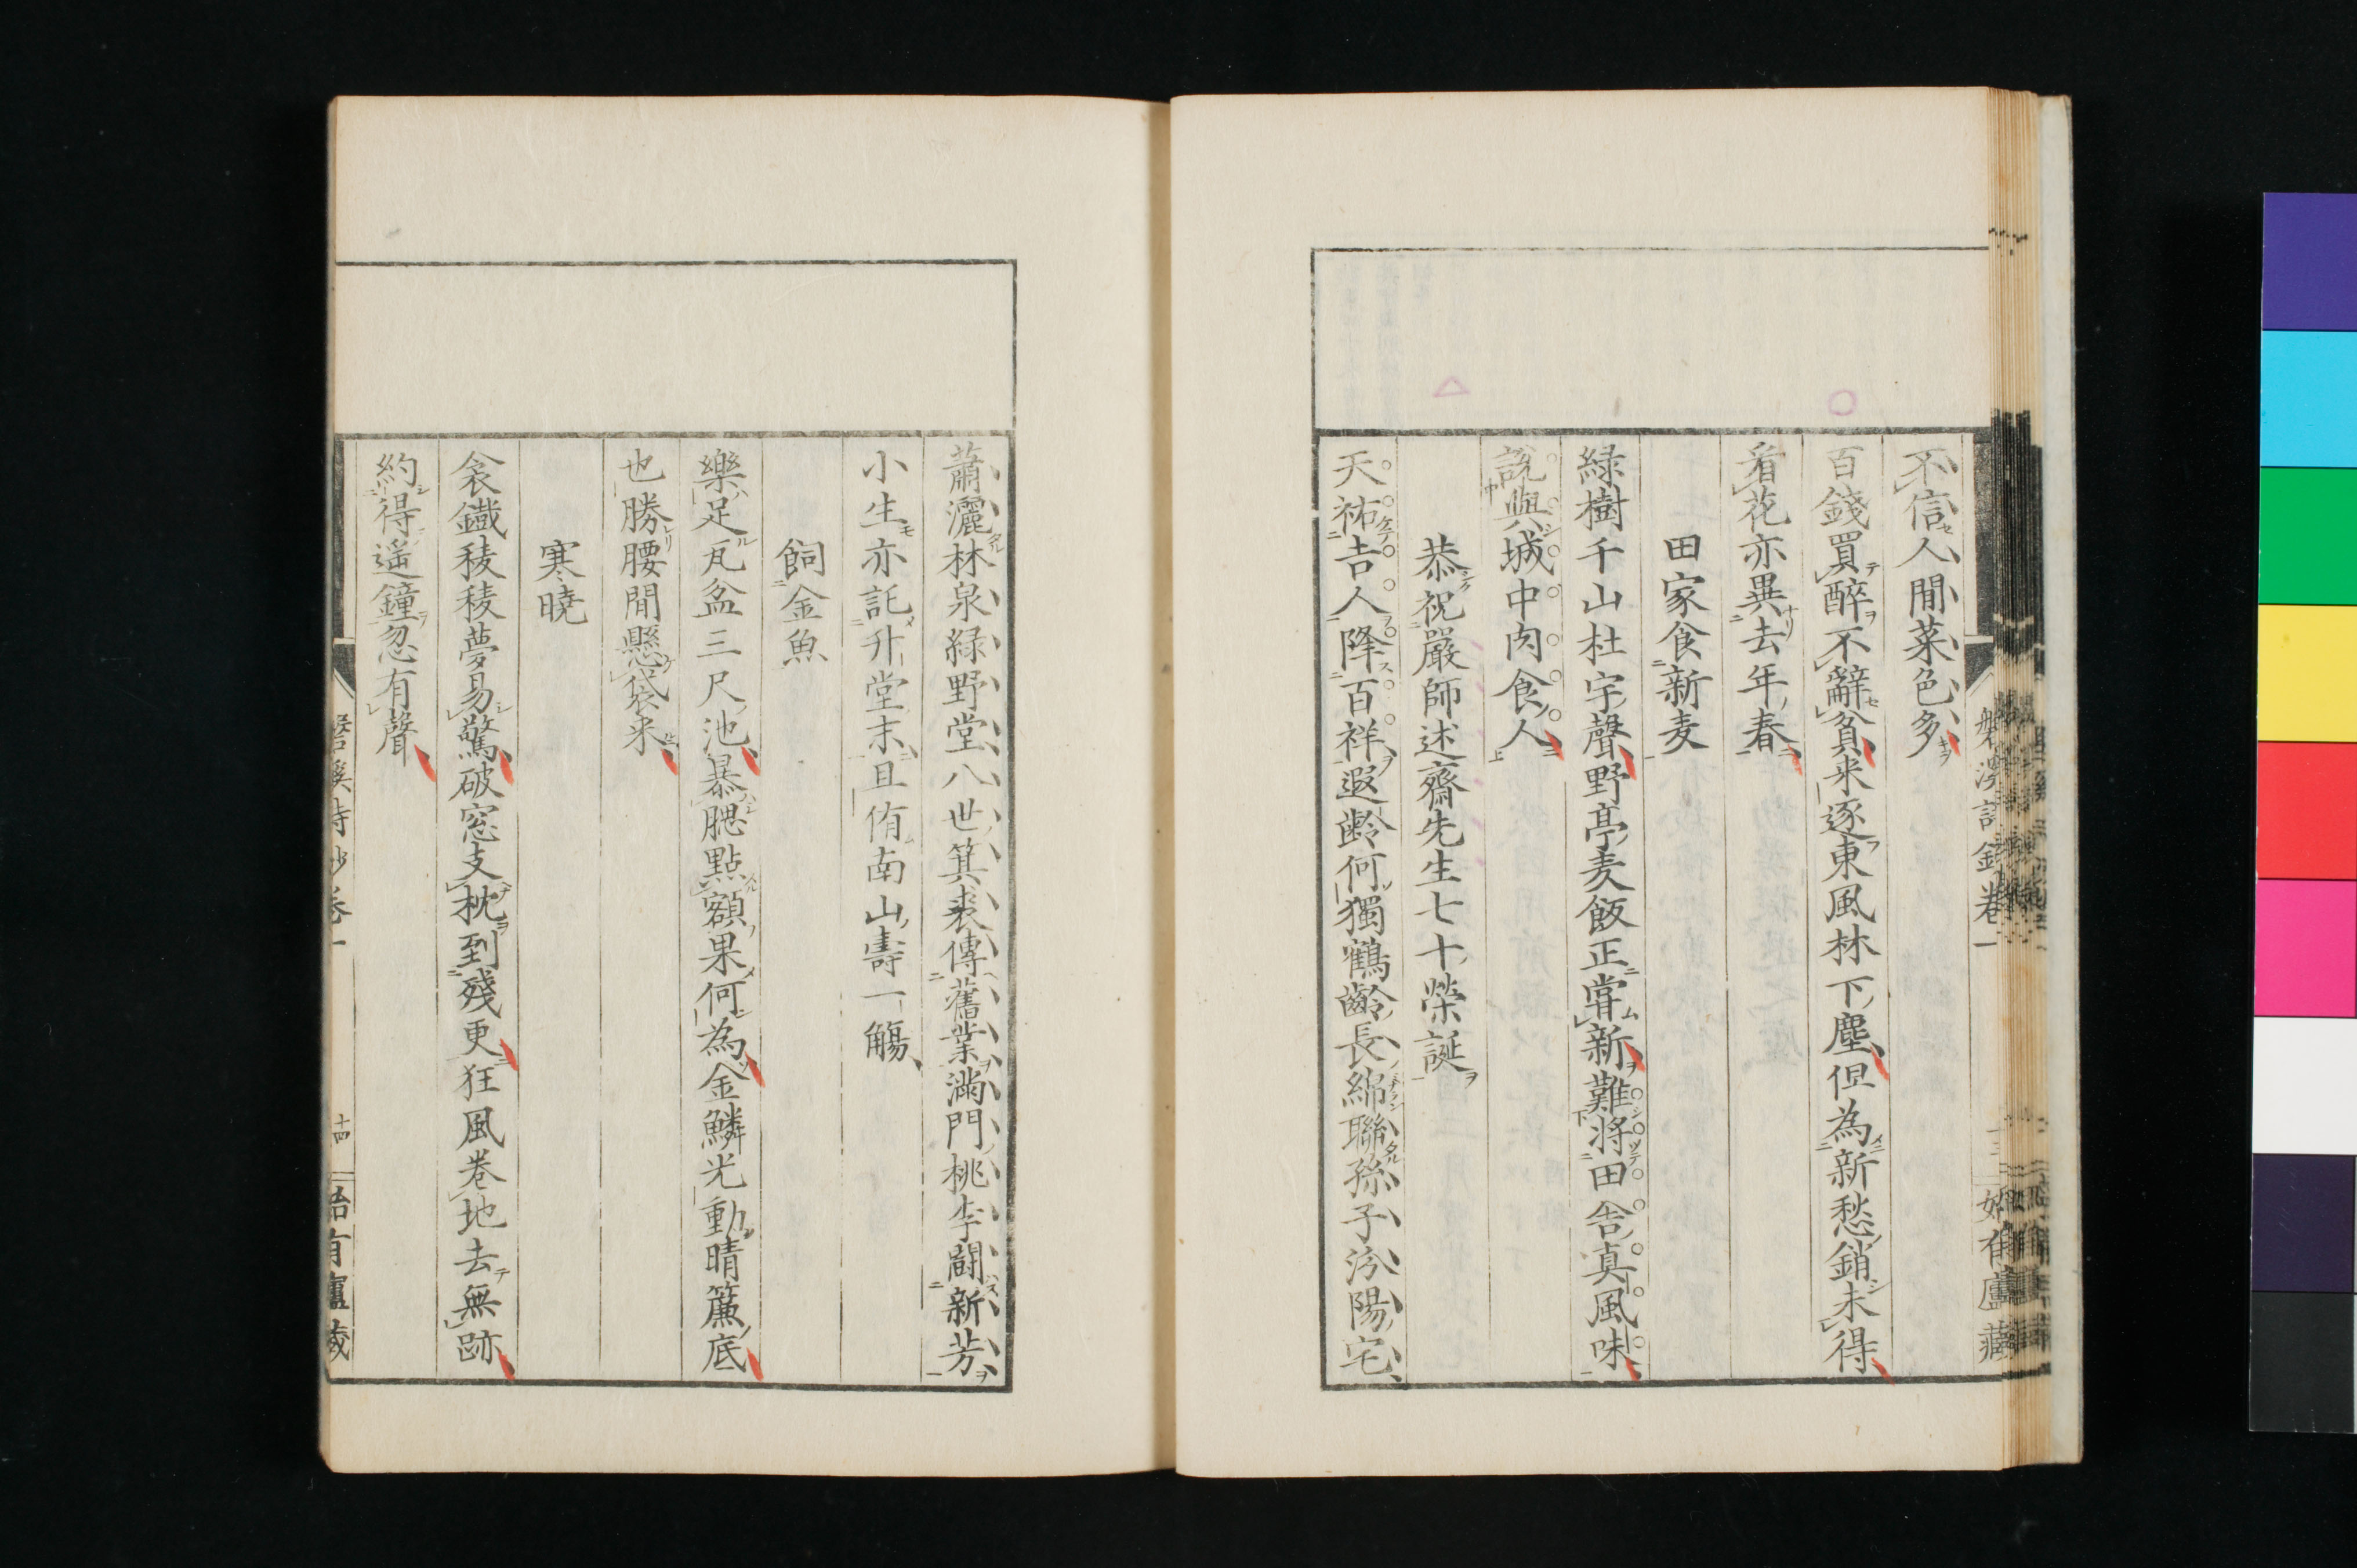 不信人間菜色多
百錢買醉不辭貧来逐東風林下塵但為新愁銷未得
看花亦異去年春
田家食新麦
緑樹千山杜宇聲野亭麦飯正甞新難将田舎真風味
説與城中肉食人
恭祝嚴師述齋先生七十榮誕
天祐吉人降百祥遐齢何獨鶴齡長綿聯孫子汾陽宅
蕭灑林泉緑野堂八世箕裘傳舊業滿門桃李闘新芳
小生亦託升堂末且侑南山壽一觴
飼金魚
樂足瓦盆三尺池暴腮點額果何為金鱗光動晴簾底
也勝腰間懸袋来
寒曉
衾鐵稜稜夢易驚破窓支枕到殘更狂風巻地去無跡
約得遥鐘忽有聲
十四